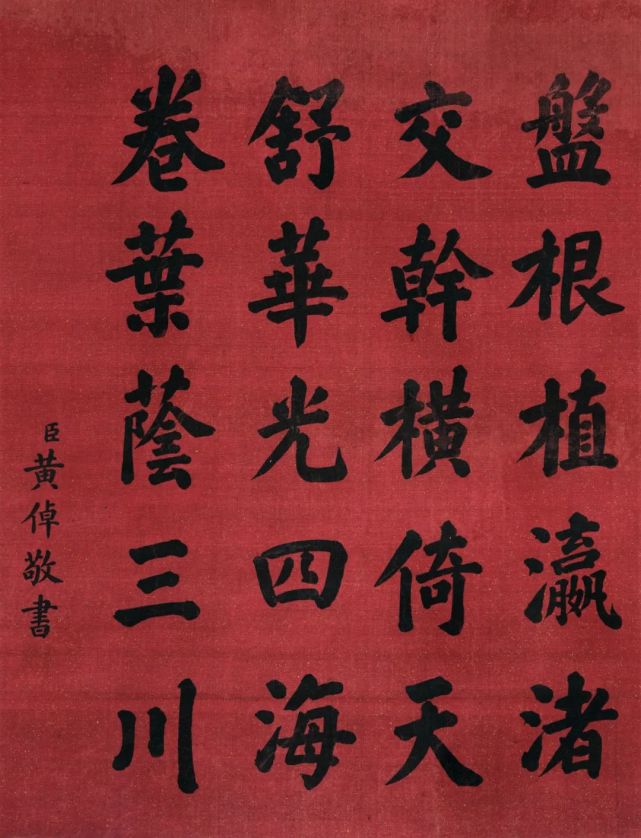 盤根植瀛渚
交幹橫倚天
舒華光四海
卷葉蔭三川
臣黃倬敬書